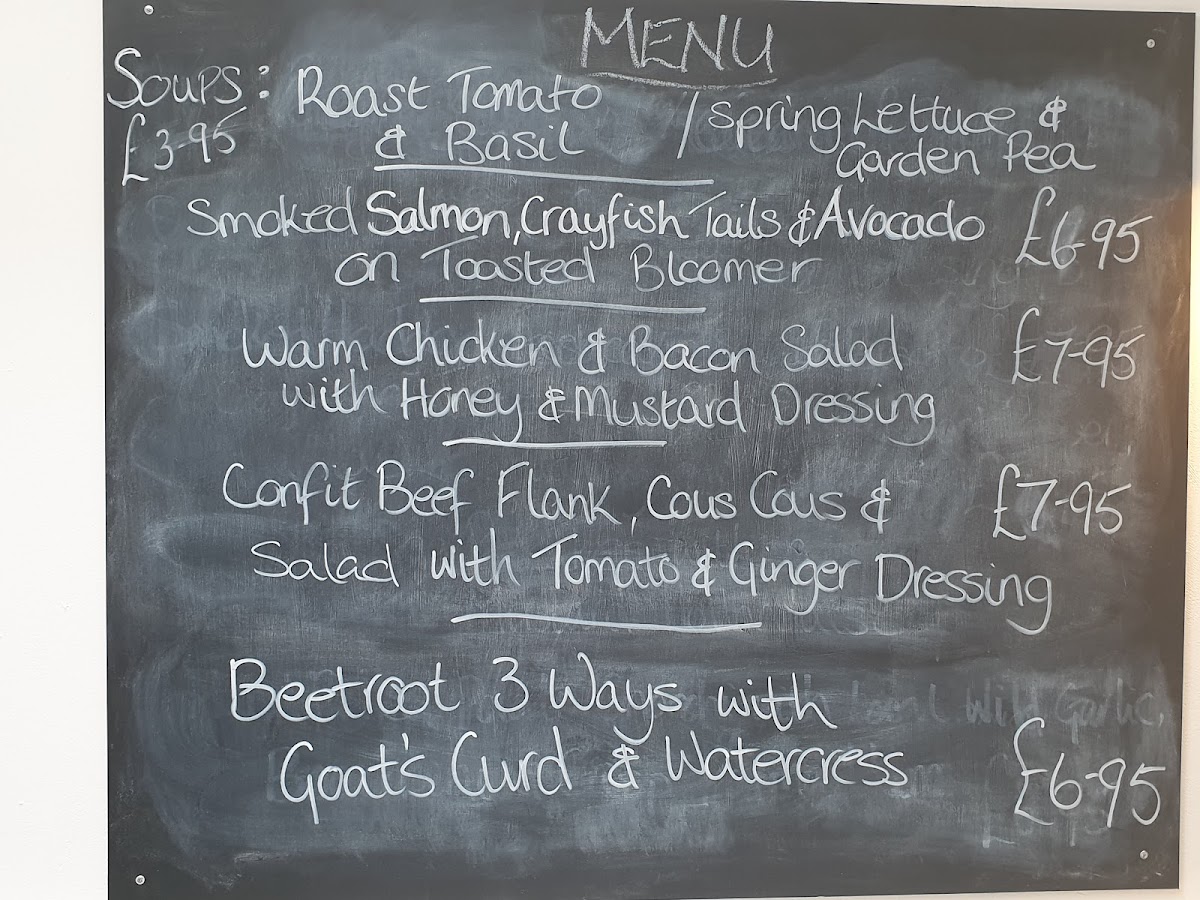 MENU
Soups: Roast Tomato / Spring Lettuce &
£3-95 & Basil Garden Pea
Smoked Salmon, Crayfish Tails & Avocado £6-95
on Toasted Bloomer
Warm Chicken & Bacon Salad £7-95
with Honey & Mustard Dressing
Confit Beef Flank, Cous Cous & £7-95
Salad with Tomato & Ginger Dressing
Beetroot 3 Ways with
Goat's Curd & Watercress £6-95